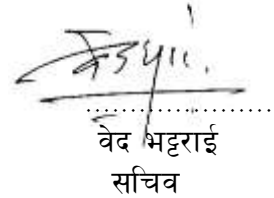 ....................
वेद भट्टराई
सचिव